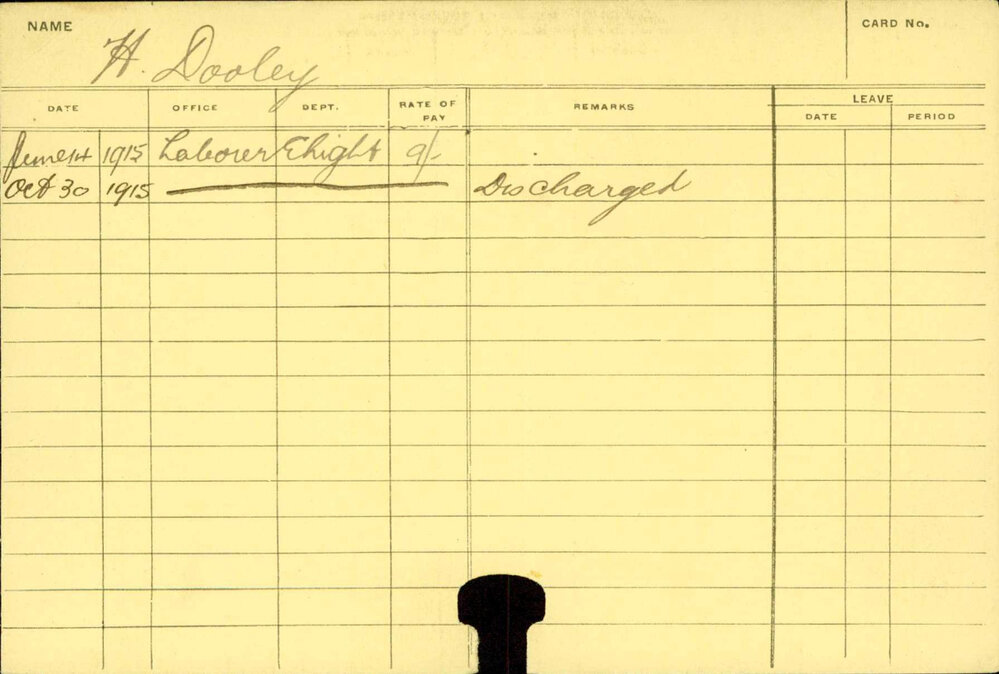 NAME H. Dooley CARD No.
DATE OFFICE DEPT. RATE OF PAY REMARKS LEAVE
DATE PERIOD
June 14 1915 Laborer Elight 9/-
Oct 30 1915 Discharged